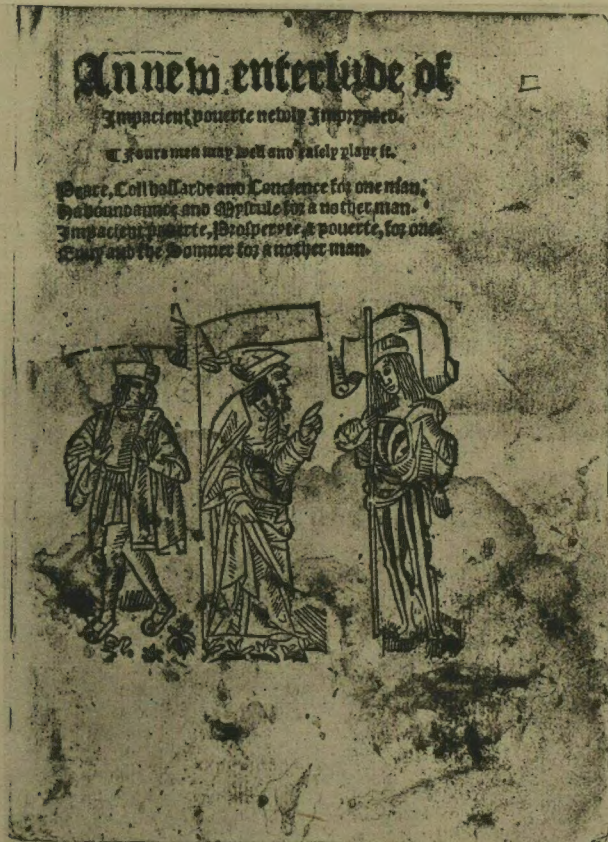 An new enterlude of
Impacient pouerte newly Imprynted.
¶ Foure men may well and easely playe it.
Peace, Coll hassarde and Conscience for one man,
Haboundaunce and Mysrule for a nother man.
Impacient pouerte, Prosperyte, & pouerte, for one.
Enuy and the Somner for a nother man.